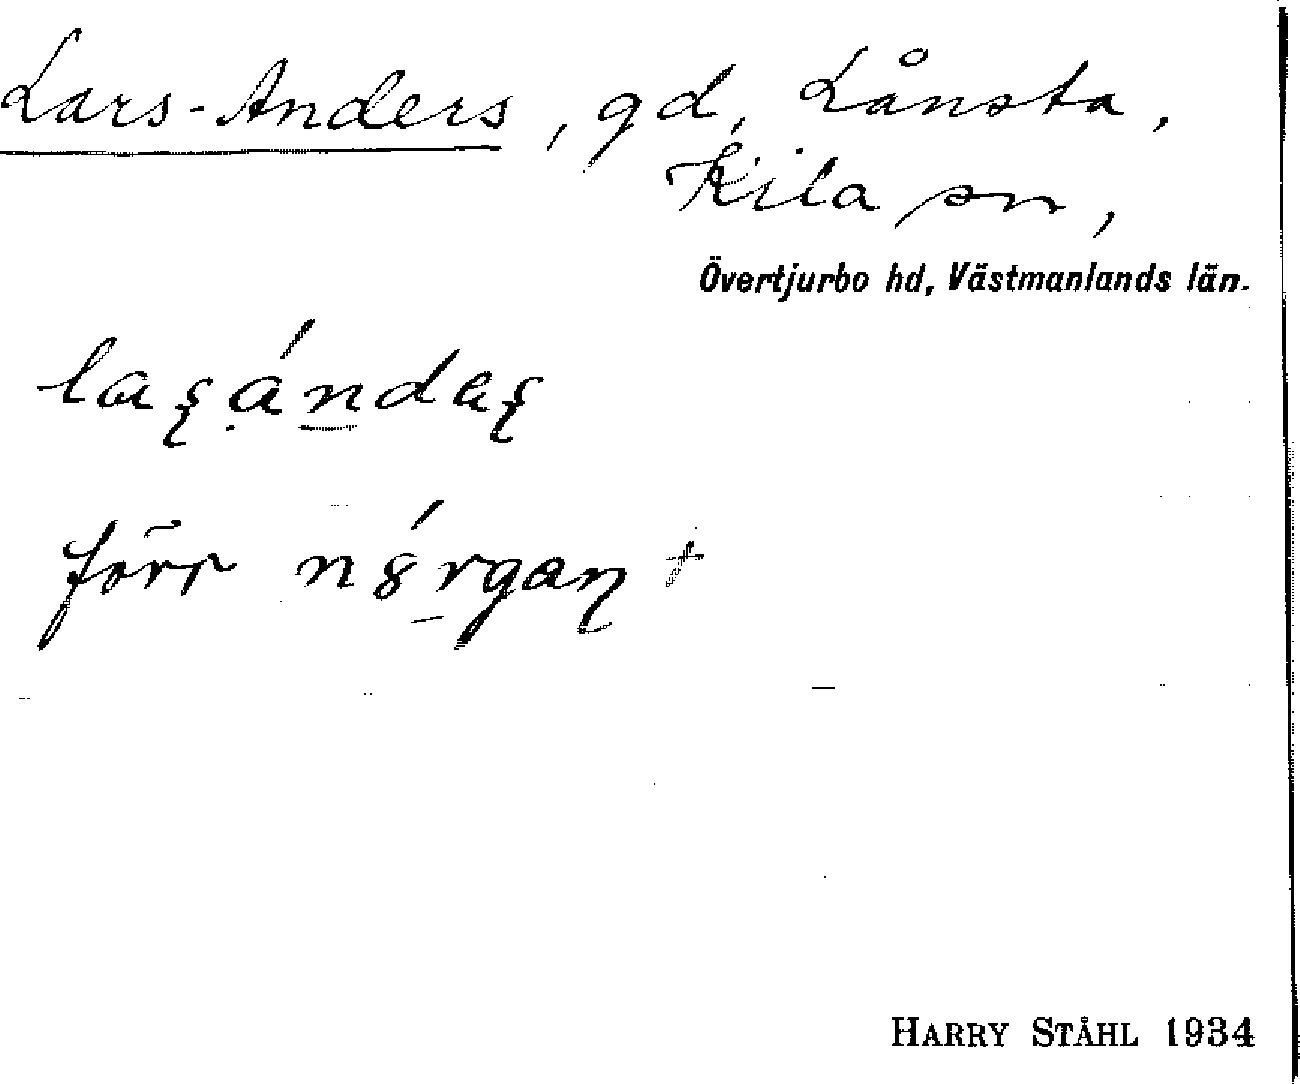 Lars-Anders, gd, Lånsta,
Kila sn,
Övertjurbo hd, Västmanlands län.
laʂándaʂ
förr nǿrgaɳ +
HARRY STÅHL 1934